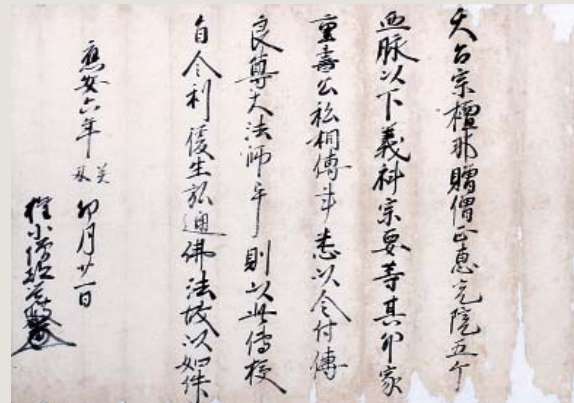 天台宗檀那贈僧正恵光院五ケ
血脉以下義科宗要等其印家
重書公私相傳畢悉以令付傳
良尊大法師畢則以此傳授
自今利後生弘通佛法故以如件
應安六年癸丑卯月廿一日
権少僧都